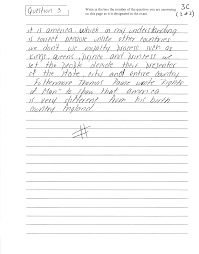 Question 3
Write in the box the number of the question you are answering
on this page as it is designated in the exam
3C
(2 of 2)
it is america which in my understanding
is correct because unlike other countries
we don't use royalty process such as
kings, queens, prince and princess we
let the people decide their presenter
of the state, city and entire country.
Futhermore Thomas Paine wrote "Rights
of Man" to show that america
is very different from his birth
country England.